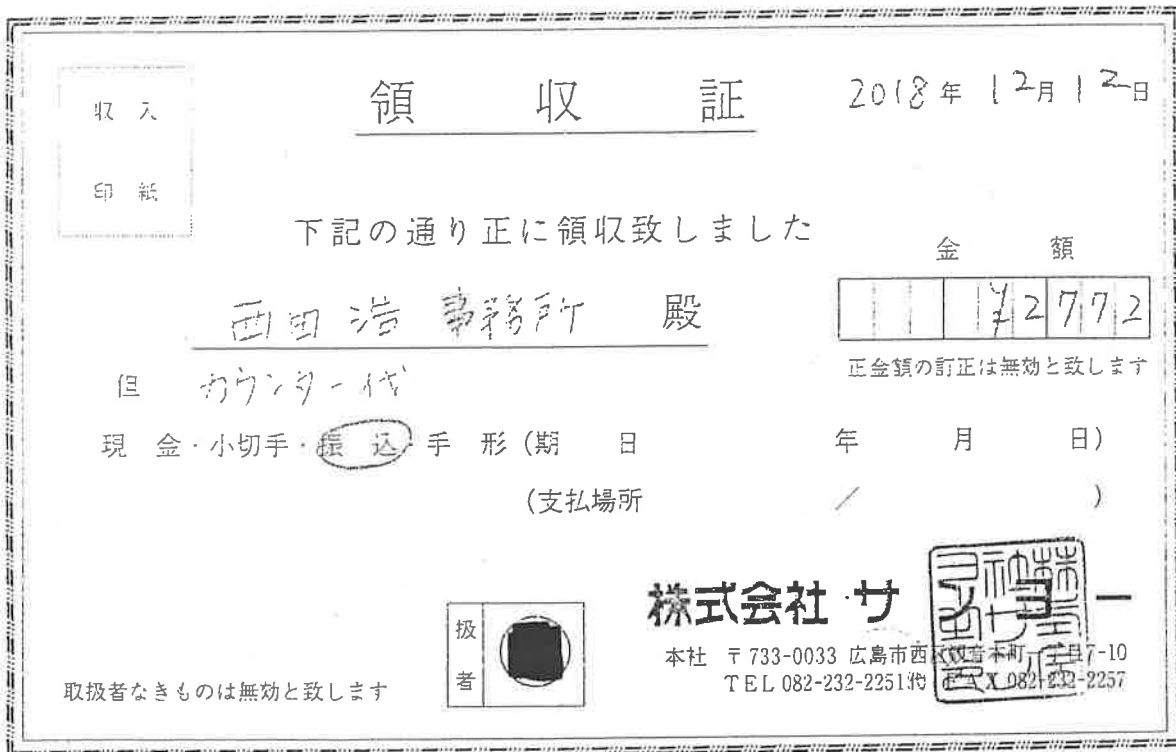 収入
印紙
領収証
2018年12月12日
下記の通り正に領収致しました
金額
西田浩事務所 殿
¥2772
正金額の訂正は無効と致します
但 カウンター代
現金・小切手・振込・手形(期日 年 月 日)
(支払場所 / )
扱者
株式会社サンヨー
本社 〒733-0033 広島市西区観音本町一丁目7-10
TEL 082-232-2251代 FAX 082-232-2257
取扱者なきものは無効と致します